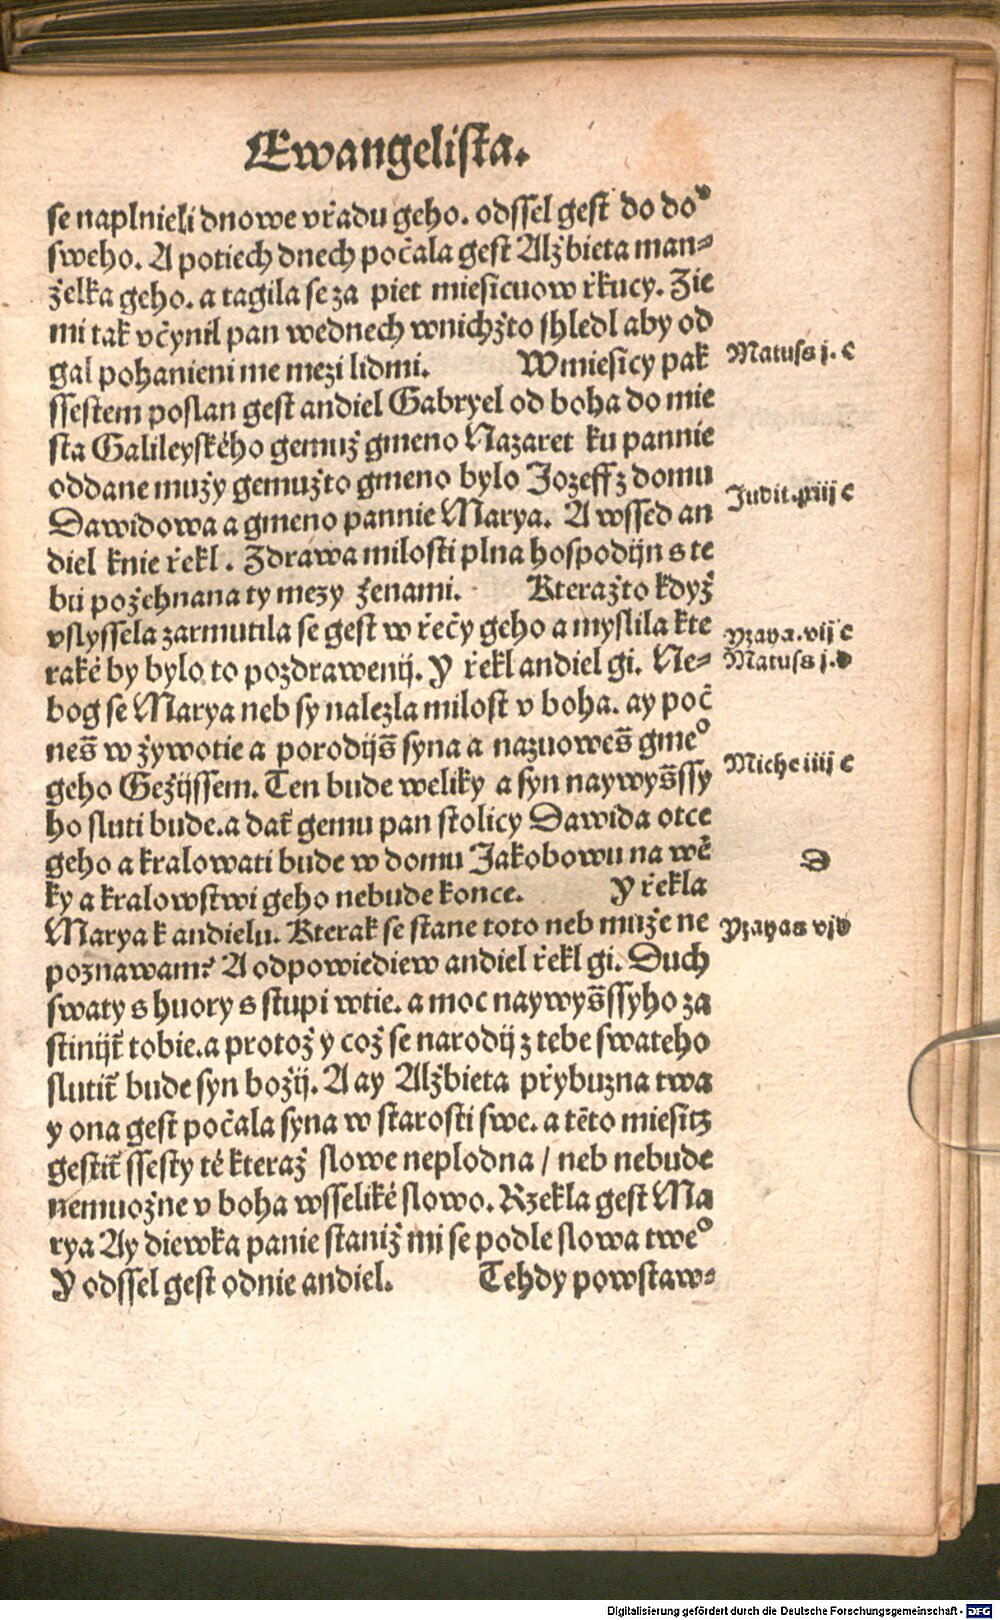 Ewangelista.
se naplnieli dnowe vřadu geho. odssel gest do doᵒ
sweho. A potiech dnech počala gest Alžbieta man⸗
želka geho. a tagila se za piet miesicuow řkucy. Zie
mi tak včynil pan wednech wnichžto shledl aby od
gal pohanieni me mezi lidmi. Wmiesicy pak
Matuss j. C
ssestem poslan gest andiel Gabryel od boha do mie
sta Galileyského gemuž gmeno Nazaret ku pannie
oddane mužy gemužto gmeno bylo Jozeff z domu
Judit. xiij C
Dawidowa a gmeno pannie Marya. A wssed an
diel knie řekl. Zdrawa milosti plna hospodijn s te
bu požehnana ty mezy ženami. Kteražto kdyz̆
vslyssela zarmutila se gest w řečy geho a myslila kte
yzaya. vij C
raké by bylo to pozdrawenij. Y řekl andiel gi. Ne⸗
Matuss j. D
bog se Marya neb sy nalezla milost v boha. ay poč
nes̃ w žywotie a porodijs̃ syna a nazuowes̃ gmeᵒ
geho Gežijssem. Ten bude weliky a syn naywys̃ssy
Miche iiij C
ho sluti bude. a dat̆ gemu pan stolicy Dawida otce
geho a kralowati bude w domu Jakobowu na wě
D
ky a kralowstwi geho nebude konce. Y řekla
Marya k andielu. Kterak se stane toto neb muže ne
yzayas vj D
poznawam? A odpowiediew andiel řekl gi. Duch
swaty s huory s stupi wtie. a moc naywys̃ssyho za
stinijt̆ tobie. a protož y což se narodij z tebe swateho
slutit̆ bude syn božij. A ay Alžbieta přybuzna twa
y ona gest počala syna w starosti swe. a těto miesitz
gestit̆ ssesty té kteraž slowe neplodna / neb nebude
nemuožne v boha wsseliké slowo. Rzekla gest Ma
rya Ay diewka panie staniž mi se podle slowa tweᵒ
Y odssel gest odnie andiel. Tehdy powstaw⸗
Digitalisierung gefördert durch die Deutsche Forschungsgemeinschaft - DFG